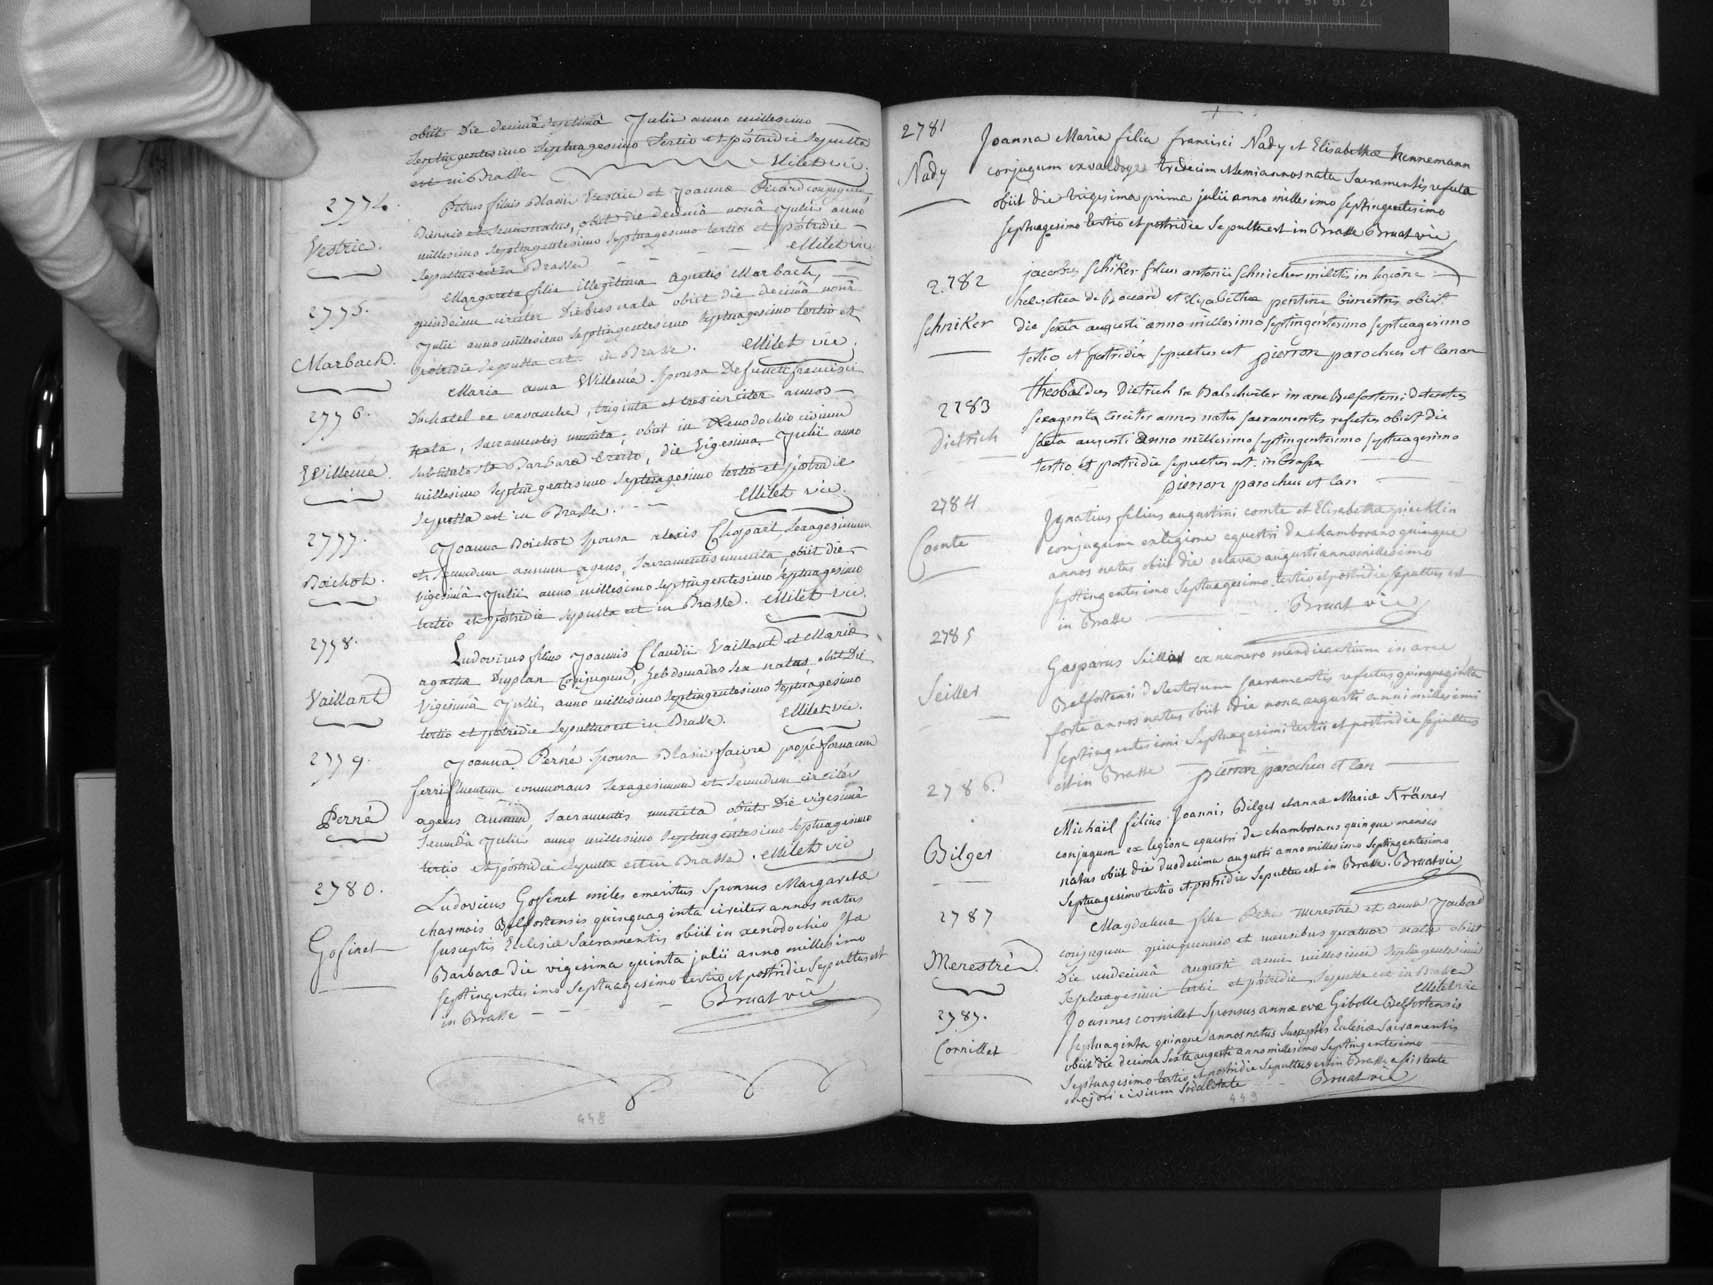 obiit die decimâ septimâ Julii anno millesimo
septingentesimo septuagesimo tertio et postridie sepulta
est in Brasse Milet vic.
2774.
Vestric.
Petrus filius Blasii Vestric et Joannæ Picard conjugum
natus, obiit die decimâ nonâ Julii anno
millesimo septingentesimo septuagesimo tertio et postridie
sepultus est in Brasse Milet vic
2775.
Marbach.
Margareta filia illegitima agnetis Marbach,
quindecim circiter diebus nata obiit die decimâ nonâ
Julii anno millesimo septingentesimo septuagesimo tertio et
postridie sepulta est in Brasse. Milet vic.
2776.
Willemé.
Maria anna Willemé sponsa defuncti francisci
Duchatel de vavauche, triginta et tres circiter annos
nata, sacramentis munita, obiit in Xenodochio civium
sub titulo Stæ Barbaræ erecto, die vigesima Julii anno
millesimo septingentesimo septuagesimo tertio et postridie
sepulta est in Brasse. Milet vic.
2777.
Boichot.
Joanna Boichot sponsa alexis Choppart, sexagesimum
et secundum annum agens, sacramentis munita obiit die
vigesimâ Julii anno millesimo septingentesimo septuagesimo
tertio et postridie sepulta est in Brasse. Milet vic.
2778.
Vaillant
Ludovicus filius Joannis Claudii Vaillant et Mariæ
agathæ Duplan conjugum, hebdomadas sex natus obiit die
vigesimâ Julii anno millesimo septingentesimo septuagesimo
tertio et postridie sepultus est in Brasse. Milet vic.
2779.
Perné
Joanna Perné sponsa Blasii faivre propè fornacem
ferri fluentem commorans sexagesimum et secundum circitèr
agens annum, sacramentis munita obiit die vigesimâ
secundâ Julii anno millesimo septingentesimo septuagesimo
tertio et postridie sepulta est in Brasse. Milet vic
2780.
Gosinet
Ludovicus Gosinet miles emeritus sponsus Margaretæ
charmois Belfortensis quinquaginta circiter annos natus
susceptis Ecclesiæ sacramentis obiit in xenodochio Stæ
Barbaræ die vigesima quinta julii anno millesimo
septingentesimo septuagesimo tertio et postridie sepultus est
in Brasse Bruat vic
448
2781
Nady
Joanna Maria filia francisci Nady et Elisabethæ hennemann
conjugum ex valdoye tredecim annos nata sacramentis refecta
obiit die trigesima prima julii anno millesimo septingentesimo
septuagesimo tertio et postridie sepulta est in Brasse Bruat vic
2782
Schniker
jacobus schniker filius antonii schnicher militis in legione
helvetica de Boccard et Elizabethæ bimestris obiit
die sexta augusti anno millesimo septingentesimo septuagesimo
tertio et postridie sepultus est pierron parochus et canon
2783
Dietrich
theobaldus Dietrich in arce Belfortensi detentus
sexaginta circiter annos natus sacramentis refectus obiit die
sexta augusti anno millesimo septingentesimo septuagesimo
tertio et postridie sepultus est in brasse
pierron parochus et can
2784
Comte
Ignatius filius augustini comte et Elisabethæ
conjugum ex legione equestri de chamborans quinque
annos natus obiit die octava augusti anno millesimo
septingentesimo septuagesimo tertio et postridie sepultus est
in Brasse Bruat vic
2785
Seiller
Gasparus Seiller ex numero mendicantium in arce
Belfortensi detentorum sacramentis refectus quinquaginta
forte annos natus obiit die nona augusti anni millesimi
septingentesimi septuagesimi tertii et postridie sepultus
est in Brasse pierron parochus et can
2786.
Bilger
Michaël filius Joannis Bilger et annæ Mariæ Krämer
conjugum ex legione equestri de chamborans quinque mensis
natus obiit die duodecima augusti anno millesimo septingentesimo
septuagesimo tertio et postridie sepultus est in Brasse. Bruat vic
2787
Menestré.
Magdalena filia Petri menestré et annæ
conjugum quinquennio et mensibus quatuor nata obiit
die undecimâ augusti anni millesimi septingentesimi
septuagesimi tertii et postridie sepulta est in Brasse
Milet vic
2787.
Cornillet
Joannes cornillet sponsus annæ evæ Gibolle Belfortensis
septuaginta quinque annos natus susceptis Ecclesiæ sacramentis
obiit die decima sexta augusti anno millesimo septingentesimo
septuagesimo tertio et postridie sepultus est in Brasse assistente
majori civium sodalitate Bruat vic
449